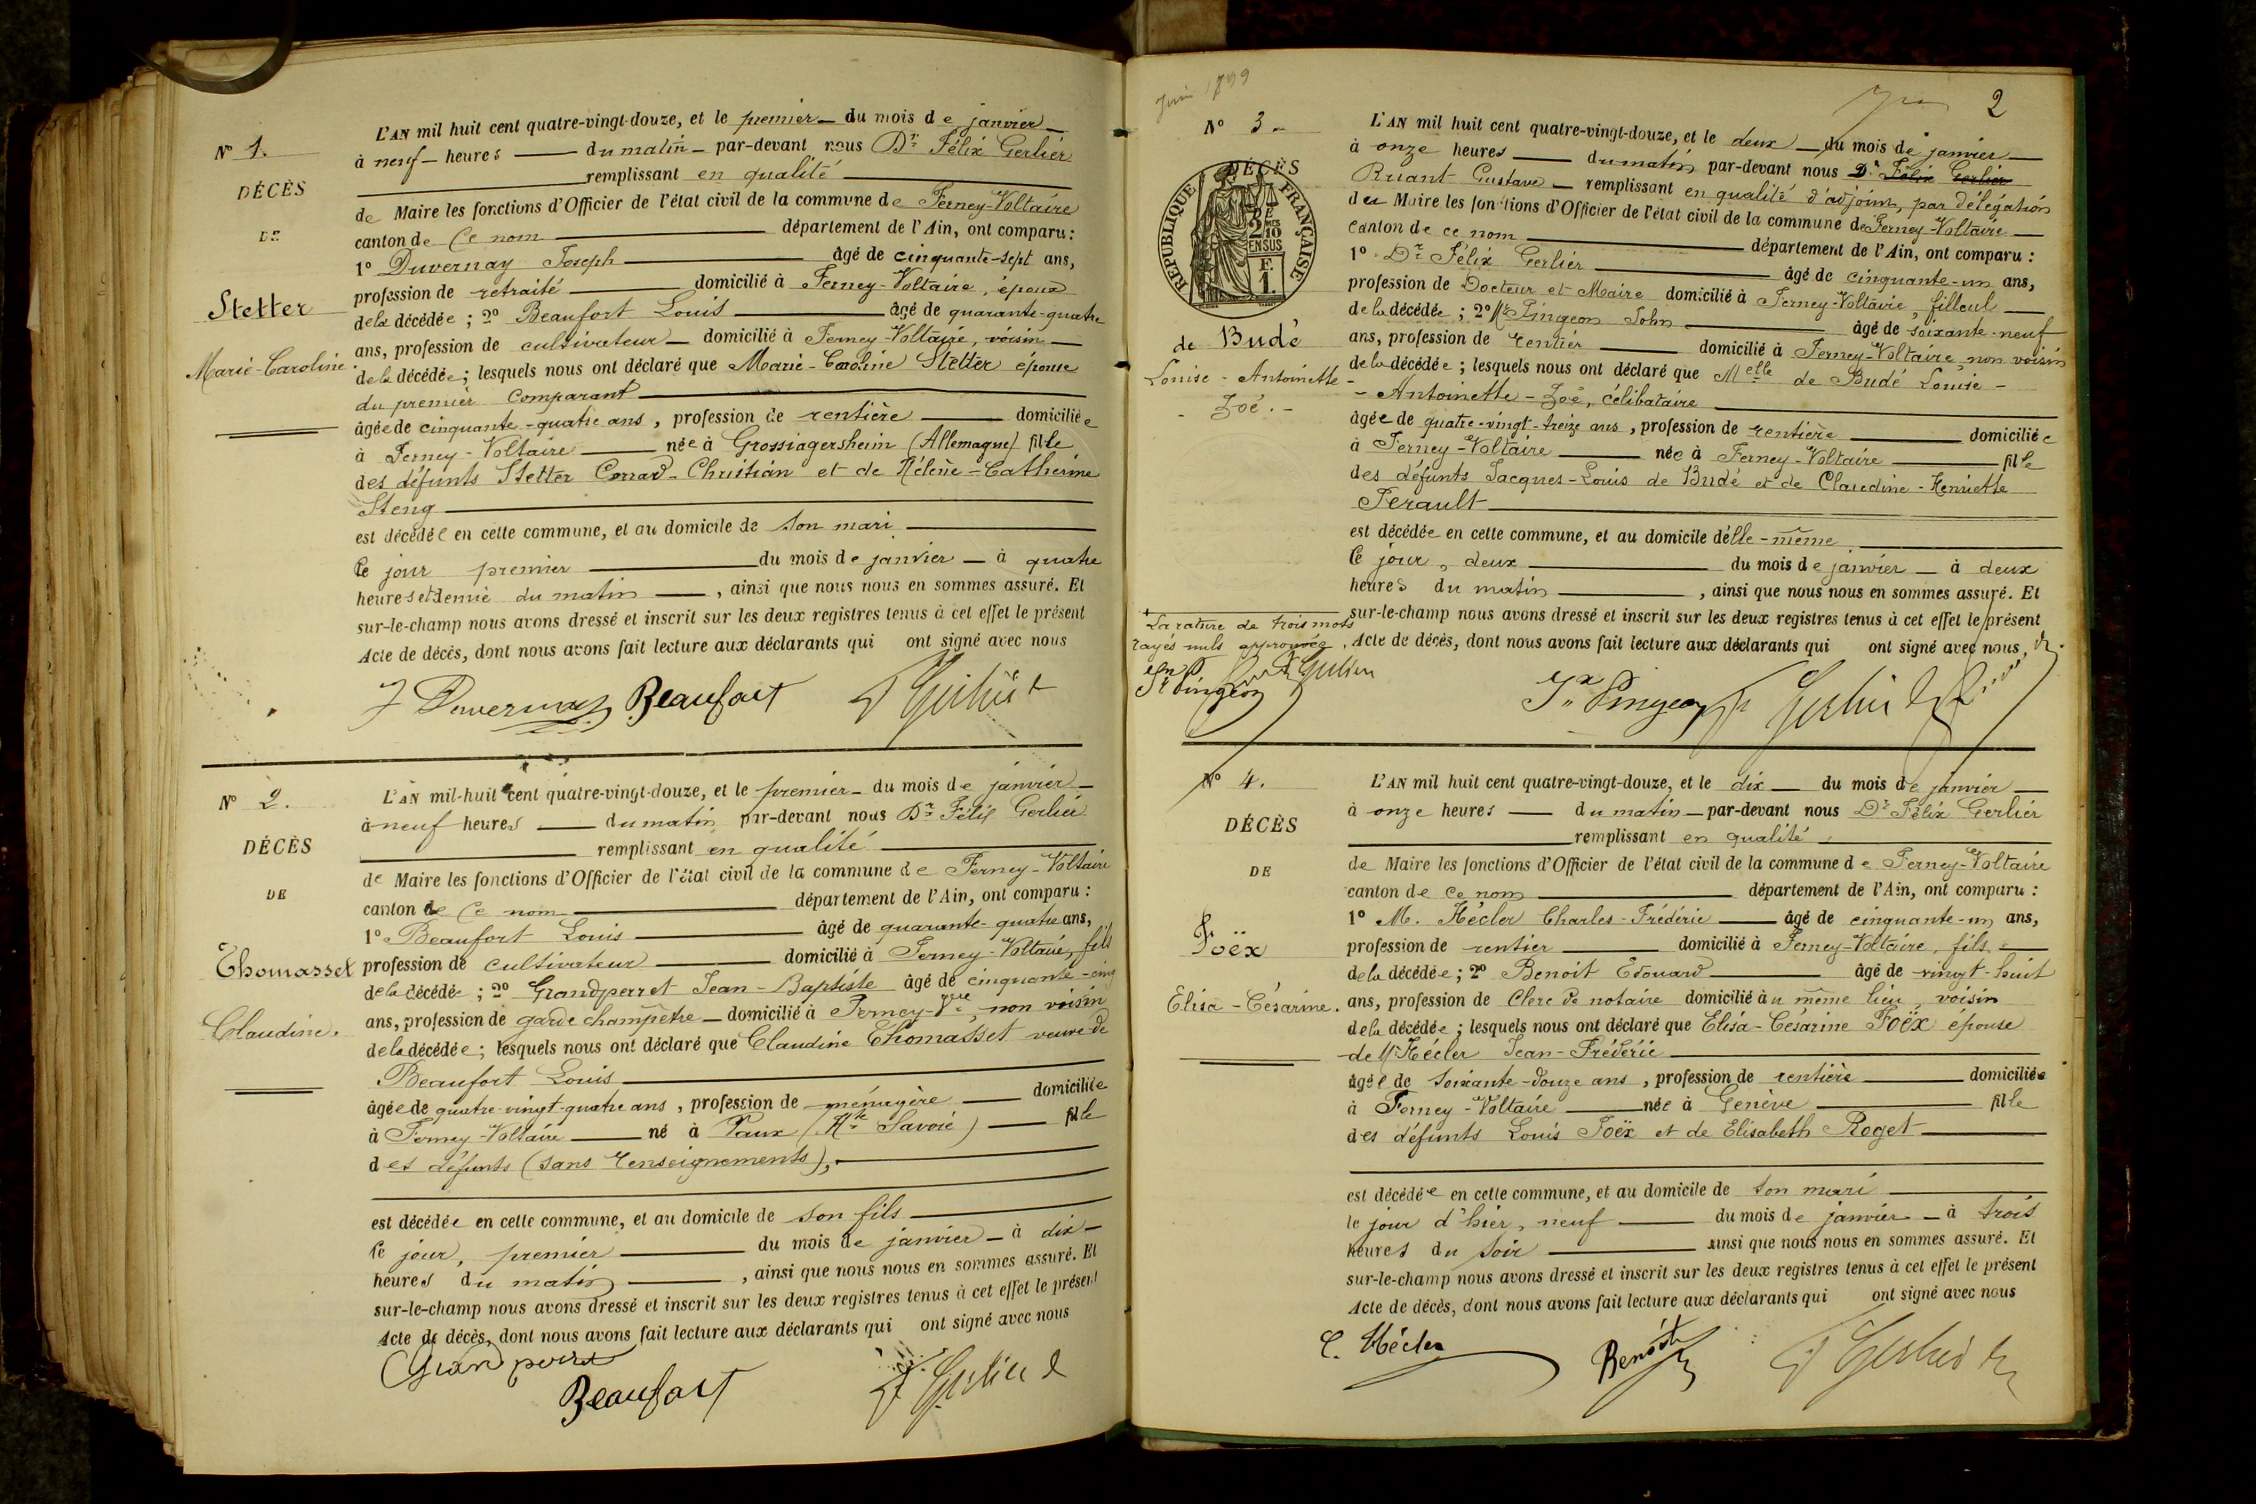 N° 1.
DÉCÈS
DE
Stetter
Marie-Caroline.
L'AN mil huit cent quatre-vingt-douze, et le premier du mois de janvier
à neuf heures du matin par-devant nous Dr Félix Gerlier
remplissant en qualité
de Maire les fonctions d'Officier de l'état civil de la commune de Ferney-Voltaire
canton de Ce nom département de l'Ain, ont comparu :
1° Duvernay Joseph âgé de cinquante-sept ans,
profession de retraité domicilié à Ferney-Voltaire, époux
de la décédée ; 2° Beaufort Louis âgé de quarante-quatre
ans, profession de cultivateur domicilié à Ferney-Voltaire, voisin
de la décédée ; lesquels nous ont déclaré que Marie-Caroline Stetter épouse
du premier Comparant
âgée de cinquante-quatre ans, profession de rentière domiciliée
à Ferney-Voltaire née à Grossiagersheim (Allemagne) fille
des défunts Stetter Conrad-Christian et de Hélène-Catherine
Steng
est décédée en cette commune, et au domicile de son mari
Ce jour premier du mois de janvier à quatre
heures et demie du matin, ainsi que nous nous en sommes assuré. Et
sur-le-champ nous avons dressé et inscrit sur les deux registres tenus à cet effet le présent
Acte de décès, dont nous avons fait lecture aux déclarants qui ont signé avec nous
J Duvernay Beaufort F Gerlier
N° 2.
DÉCÈS
DE
Thomasset
Claudine.
L'AN mil-huit cent quatre-vingt-douze, et le premier du mois de janvier
à neuf heures du matin par-devant nous Dr Félix Gerlier
remplissant en qualité
de Maire les fonctions d'Officier de l'état civil de la commune de Ferney-Voltaire
canton de Ce nom département de l'Ain, ont comparu :
1° Beaufort Louis âgé de quarante-quatre ans,
profession de cultivateur domicilié à Ferney-Voltaire, fils
de la décédée ; 2° Grandperret Jean-Baptiste âgé de cinquante-cinq
ans, profession de garde champêtre domicilié à Ferney-Vre, non voisin
de la décédée ; lesquels nous ont déclaré que Claudine Thomasset veuve de
Beaufort Louis
âgée de quatre-vingt-quatre ans, profession de ménagère domiciliée
à Ferney-Voltaire né à Vaux (Hte Savoie) fille
des défunts (sans renseignements),
est décédée en cette commune, et au domicile de son fils
Ce jour, premier du mois de janvier à dix
heures du matin, ainsi que nous nous en sommes assuré. Et
sur-le-champ nous avons dressé et inscrit sur les deux registres tenus à cet effet le présent
Acte de décès, dont nous avons fait lecture aux déclarants qui ont signé avec nous
Grandperret
Beaufort F Gerlier
2
N° 3.
DÉCÈS
RÉPUBLIQUE FRANÇAISE
de Budé
Louise-Antoinette-
-Zoé.-
L'AN mil huit cent quatre-vingt-douze, et le deux du mois de janvier
à onze heures du matin par-devant nous Dr Félix Gerlier
Ruant Gustave remplissant en qualité d'adjoint, par délégation
du Maire les fonctions d'Officier de l'état civil de la commune de Ferney-Voltaire
canton de ce nom département de l'Ain, ont comparu :
1° Dr Félix Gerlier âgé de cinquante-un ans,
profession de Docteur et Maire domicilié à Ferney-Voltaire, filleul
de la décédée ; 2° Mr Pingeon John âgé de soixante-neuf
ans, profession de rentier domicilié à Ferney-Voltaire non voisin
de la décédée ; lesquels nous ont déclaré que Melle de Budé Louise-
-Antoinette-Zoé, célibataire
âgée de quatre-vingt-treize ans, profession de rentière domiciliée
à Ferney-Voltaire née à Ferney-Voltaire fille
des défunts Jacques-Louis de Budé et de Claudine-Henriette
Perault
est décédée en cette commune, et au domicile d'elle-même
Ce jour, deux du mois de janvier à deux
heures du matin, ainsi que nous nous en sommes assuré. Et
sur-le-champ nous avons dressé et inscrit sur les deux registres tenus à cet effet le présent
Acte de décès, dont nous avons fait lecture aux déclarants qui ont signé avec nous,
+ La rature de trois mots
rayés nuls approuvée.
Jn Pingeon F Gerlier
N° 4.
DÉCÈS
DE
Foëx
Elisa-Césarine.
L'AN mil huit cent quatre-vingt-douze, et le dix du mois de janvier
à onze heures du matin par-devant nous Dr Félix Gerlier
remplissant en qualité
de Maire les fonctions d'Officier de l'état civil de la commune de Ferney-Voltaire
canton de Ce nom département de l'Ain, ont comparu :
1° M. Hécler Charles-Frédéric âgé de cinquante-un ans,
profession de rentier domicilié à Ferney-Voltaire, fils
de la décédée ; 2° Benoit Edouard âgé de vingt-huit
ans, profession de Clerc de notaire domicilié au même lieu, voisin
de la décédée ; lesquels nous ont déclaré que Elisa-Césarine Foëx épouse
de Mr Hécler Jean-Frédéric
âgée de soixante-douze ans, profession de rentière domiciliée
à Ferney-Voltaire née à Genève fille
des défunts Louis Foëx et de Elisabeth Roget
est décédée en cette commune, et au domicile de son mari
le jour d'hier, neuf du mois de janvier à trois
heures du soir ainsi que nous nous en sommes assuré. Et
sur-le-champ nous avons dressé et inscrit sur les deux registres tenus à cet effet le présent
Acte de décès, dont nous avons fait lecture aux déclarants qui ont signé avec nous
C. Hécler Benoit F Gerlier